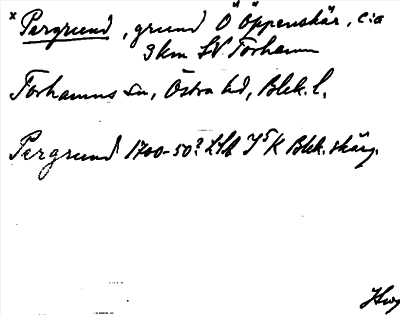 x Pergrund, grund Ö Öppenskär, c:a
3km SV Torhamn
Torhamns sn, Östra hd, Blek. l.
Pergrund 1700-50? K Blek. skärg.